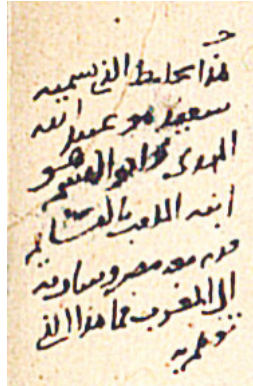 هذا تخليط الذي سميه
سعيد هو عبيد الله
المهدي وابو القسم هو
ابنه الملقب بالقايم
قدم معه مصر وسار معه
الى المغرب فما هذا الذي